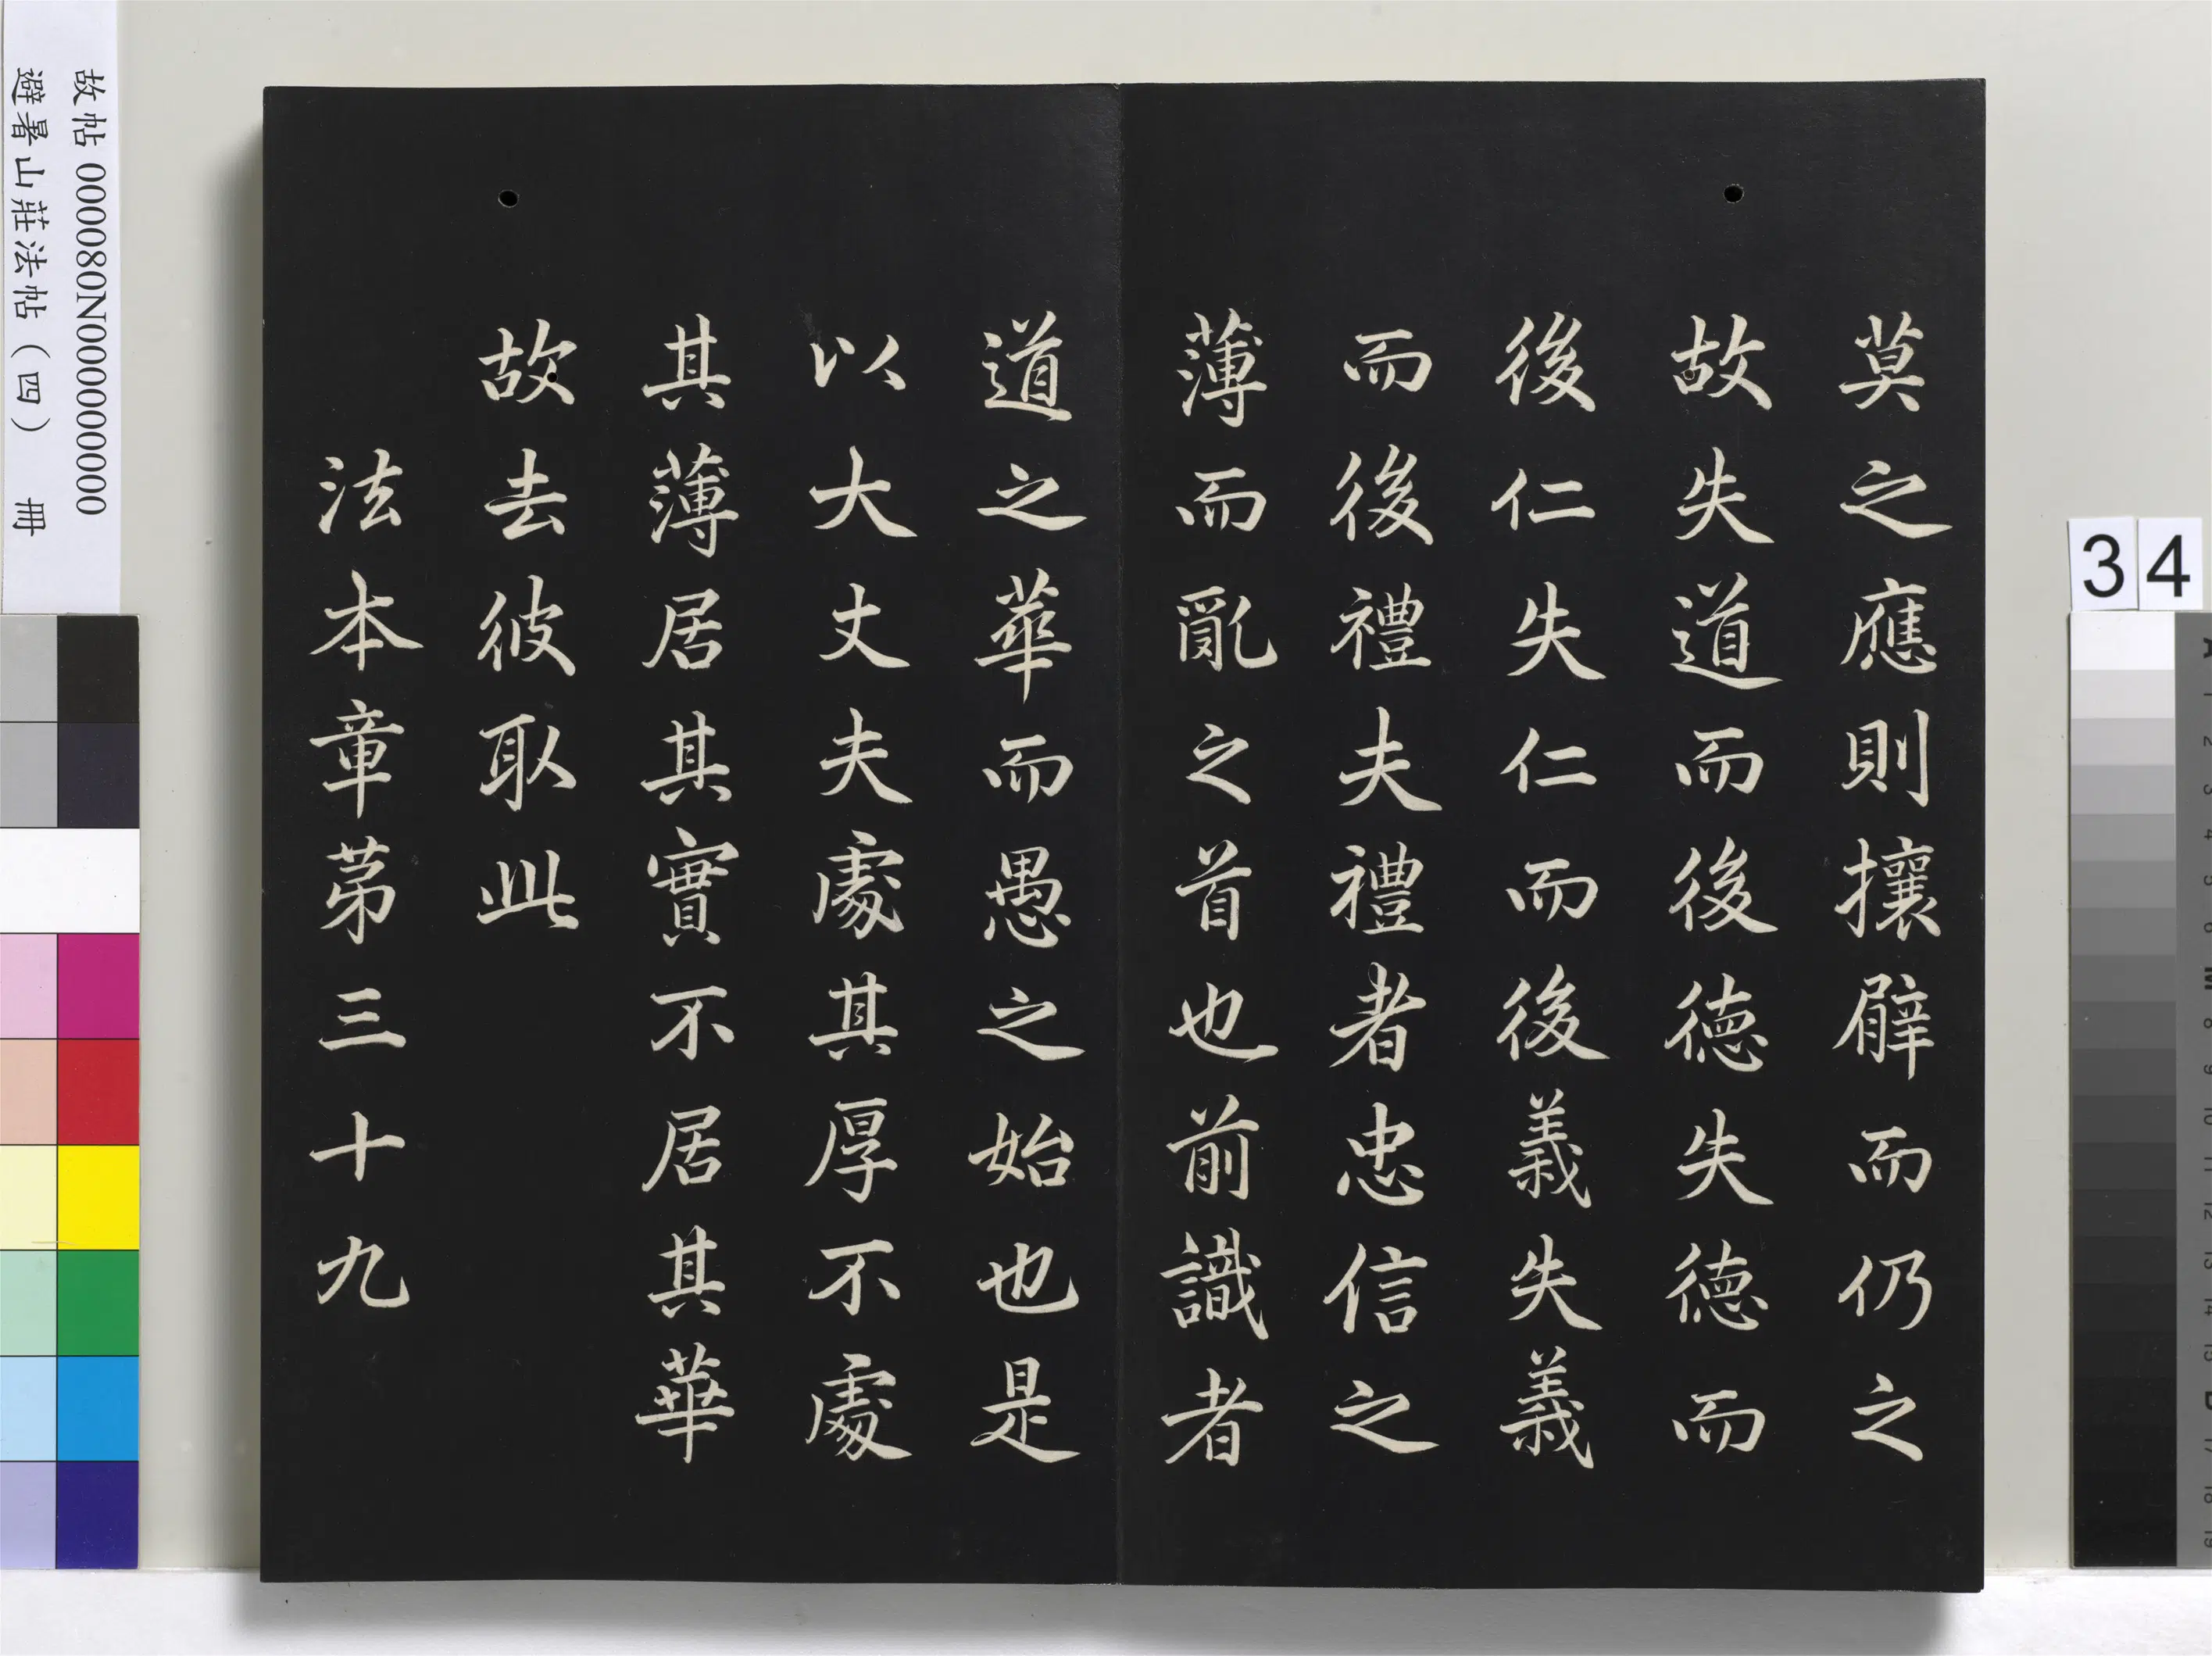 莫之應則攘臂而仍之
故失道而後德失德而
後仁失仁而後義失義
而後禮夫禮者忠信之
薄而亂之首也前識者
道之華而愚之始也是
以大丈夫處其厚不處
其薄居其實不居其華
故去彼取此
法本章第三十九
故帖 000080N000000000
避暑山莊法帖（四） 冊
34